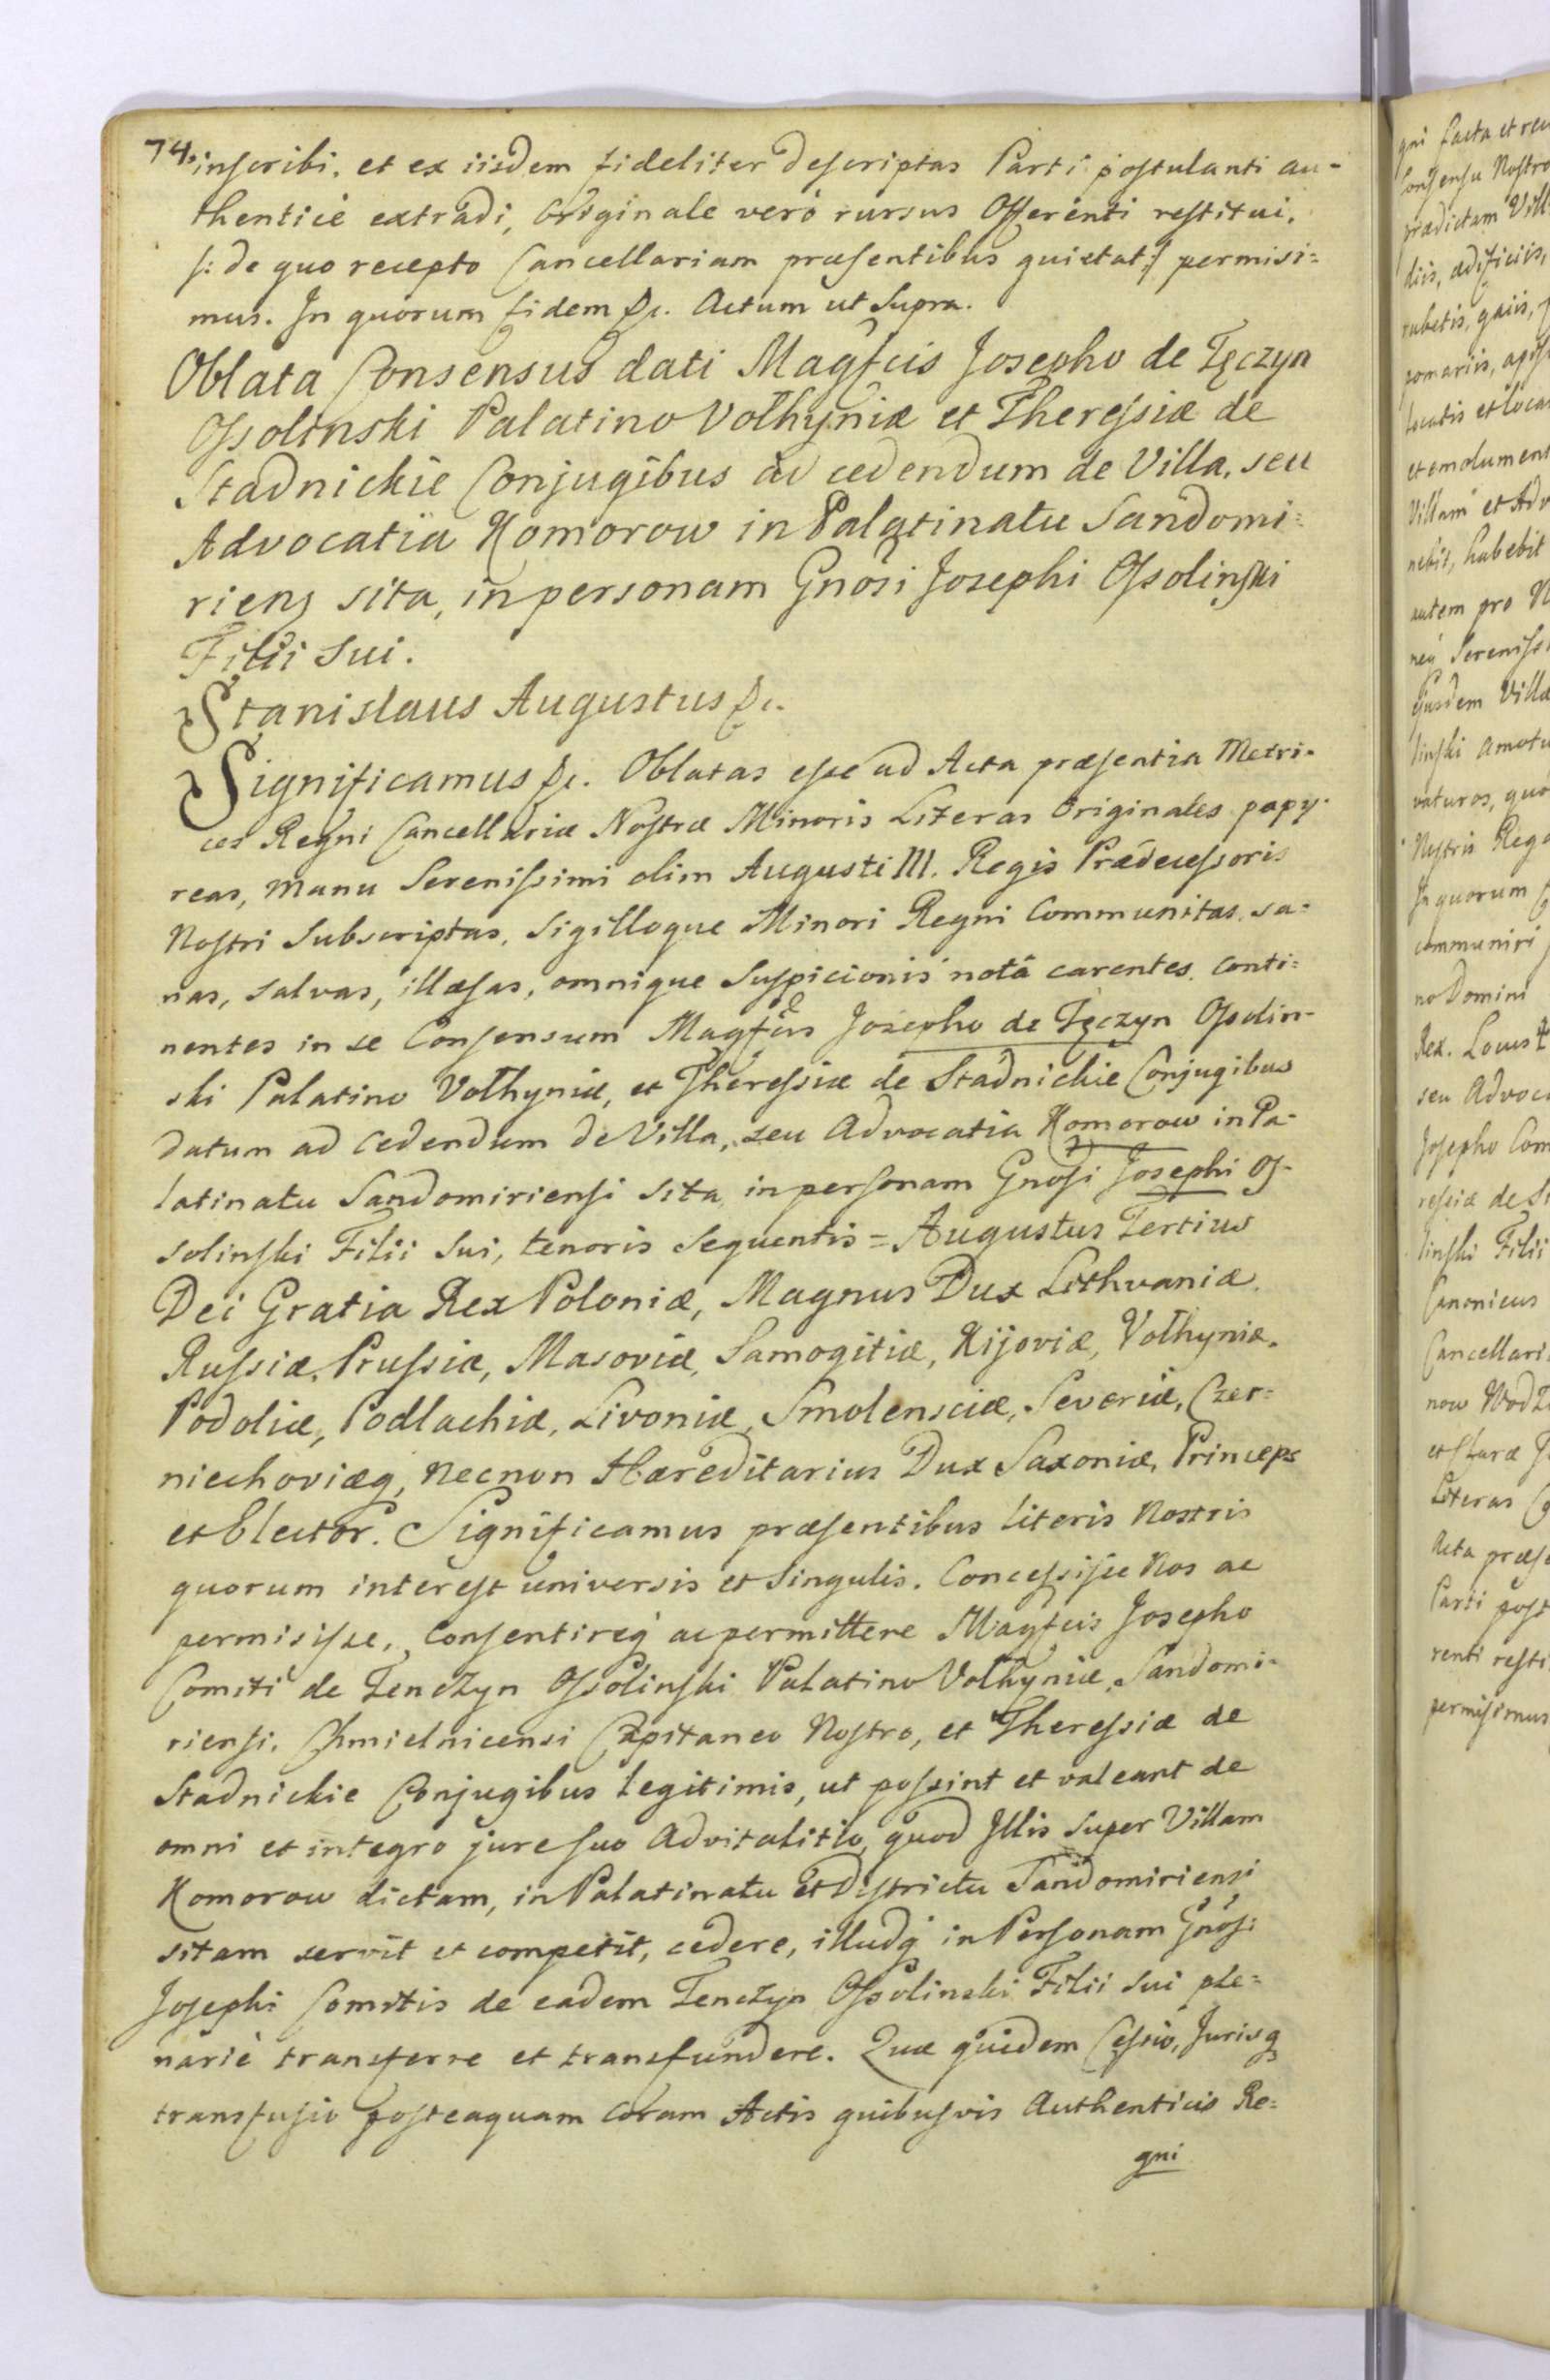 74.
inscribi, et ex iisdem fideliter descriptas Parti postulanti au-
thenticè extradi, Originale verò rursus Offerenti restitui,
/: de quo recepto Cancellariam præsentibus quietat :/ permisi=
mus. In quorum fidem &c. Actum ut Supra.
Oblata Consensus dati Magfcis Josepho de Tęczyn
Ossolinski Palatino Volhyniæ et Theressiæ de
Stadnickie Conjugibus ad cedendum de Villa, seu
Advocatia Komorow in Palatinatu Sandomi=
riens sita, in personam Gnosi Josephi Ossolinski
Filii Sui.
Stanislaus Augustus &c.
Significamus &c. Oblatas esse ad Acta præsentia Metri-
ces Regni Cancellariæ Nostræ Minoris Literas Originales papy-
reas, manu Serenissimi olim Augusti III. Regis Prædecessoris
Nostri Subscriptas, Sigilloque Minori Regni Communitas, sa=
nas, salvas, illæsas, omnique Suspicionis notâ carentes, conti=
nentes in se Consensum Magfcis Josepho de Tęczyn Ossolin-
ski Palatino Volhyniæ, et Theressiæ de Stadnickie Conjugibus
datum ad cedendum de Villa, seu Advocatia Komorow in Pa-
latinatu Sandomiriensi sita, in personam Gnosi Josephi Os-
solinski Filii Sui, tenoris sequentis = Augustus Tertius
Dei Gratia Rex Poloniæ, Magnus Dux Lithvaniæ,
Russiæ, Prussiæ, Masoviæ, Samogitiæ, Kijoviæ, Volhyniæ,
Podoliæ, Podlachiæ, Livoniæ, Smolensciæ, Severiæ, Czer=
niechoviæq, necnon Hæreditarius Dux Saxoniæ, Princeps
et Elector. Significamus præsentibus literis Nostris
quorum interest universis et singulis. Concessisse Nos ac
permisisse, Consentireq ac permittere Magfcis Josepho
Comiti de Tenczyn Ossolinski Palatino Volhyniæ, Sandomi-
riensi, Chmielnicensi Capitaneo Nostro, et Theressiæ de
Stadnickie Conjugibus legitimis, ut possint et valeant de
omni et integro jure suo Advitalitio, quod Illis super Villam
Komorow dictam, in Palatinatu et Districtu Sandomiriensi
sitam servit et competit, cedere, illudq in Personam Gnosi
Josephi Comitis de eadem Tenczyn Ossolinski Filii Sui ple=
nariè transferre et transfundere. Quæ quidem Cessio, Jurisq
transfusio posteaquam coram Actis quibusvis Authenticis Re=
gni